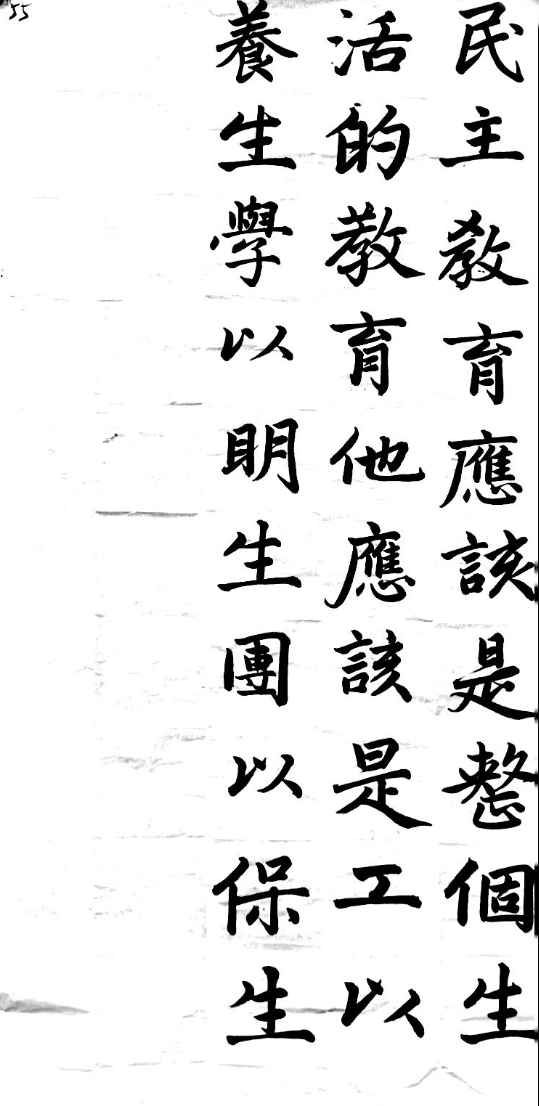 民主教育應該是整個生
活的教育他應該是工以
養生學以明生團以保生
55